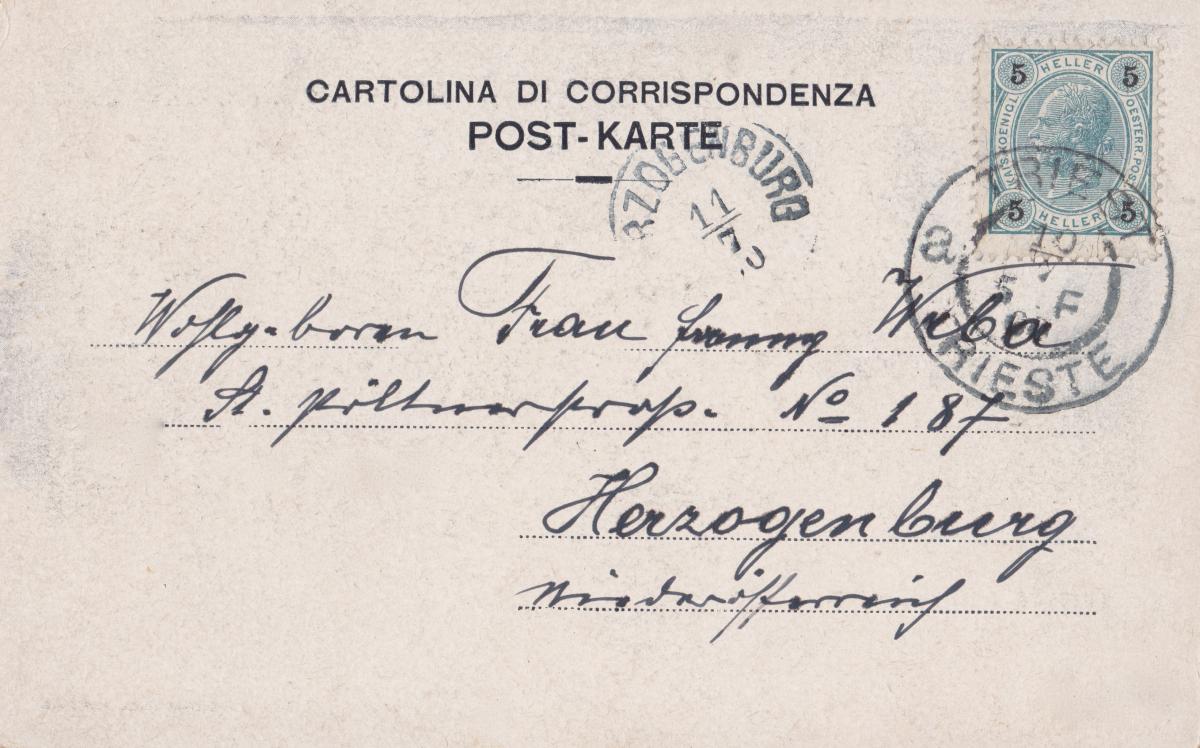 CARTOLINA DI CORRISPONDENZA
POST-KARTE
5 HELLER 5
KAIS. KOENIGL. OESTERR. POST
5 HELLER 5
RZOGENBURG
11
TRIEST
a 10
5 F
TRIESTE
Wohlgeboren Frau Fanny Weba
St. Pöltnerstraße No 187
Herzogenburg
Niederösterreich